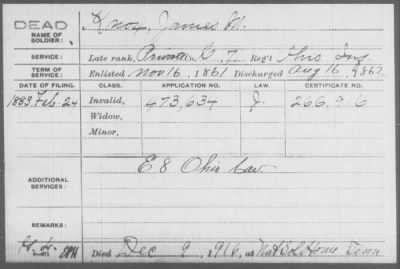 DEAD
NAME OF SOLDIER: Knox, James M.
SERVICE: Late rank, Private Co., G. 7 Reg't Ohio Inf.
TERM OF SERVICE: Enlisted Nov 16, 1861 Discharged Aug 16, 186
DATE OF FILING. CLASS. APPLICATION NO. LAW. CERTIFICATE NO.
1883 Feb. 24 Invalid, 473,634 J. 266,916
Widow,
Minor,
ADDITIONAL SERVICES: E 8 Ohio Cav.
REMARKS:
Died Dec 9, 1916, at Nat'l Home Tenn